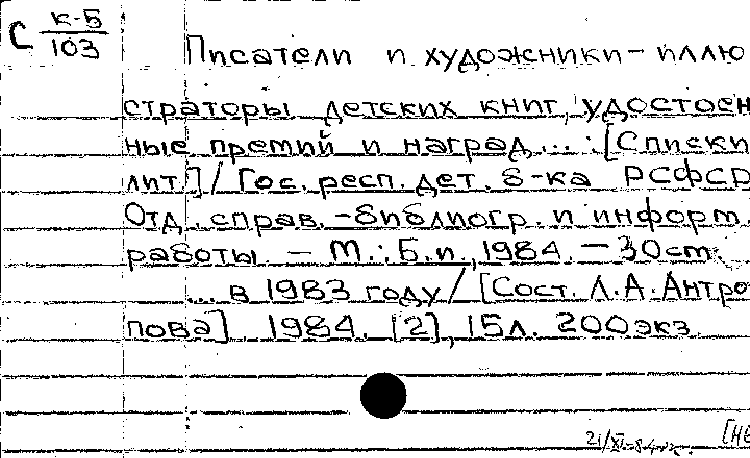 С К-Б
103
Писатели и художники-иллю
страторы детских книг, удостоен
ные премий и наград... : [Списки
лит.] / Гос. респ. дет. б-ка РСФСР
Отд. справ.-библиогр. и информ.
работы. - М.: Б.и., 1984. - 30см.
... в 1983 году / [Сост. Л.А. Антро
пова]. 1984. [2], 15л. 200экз.
[НЕ